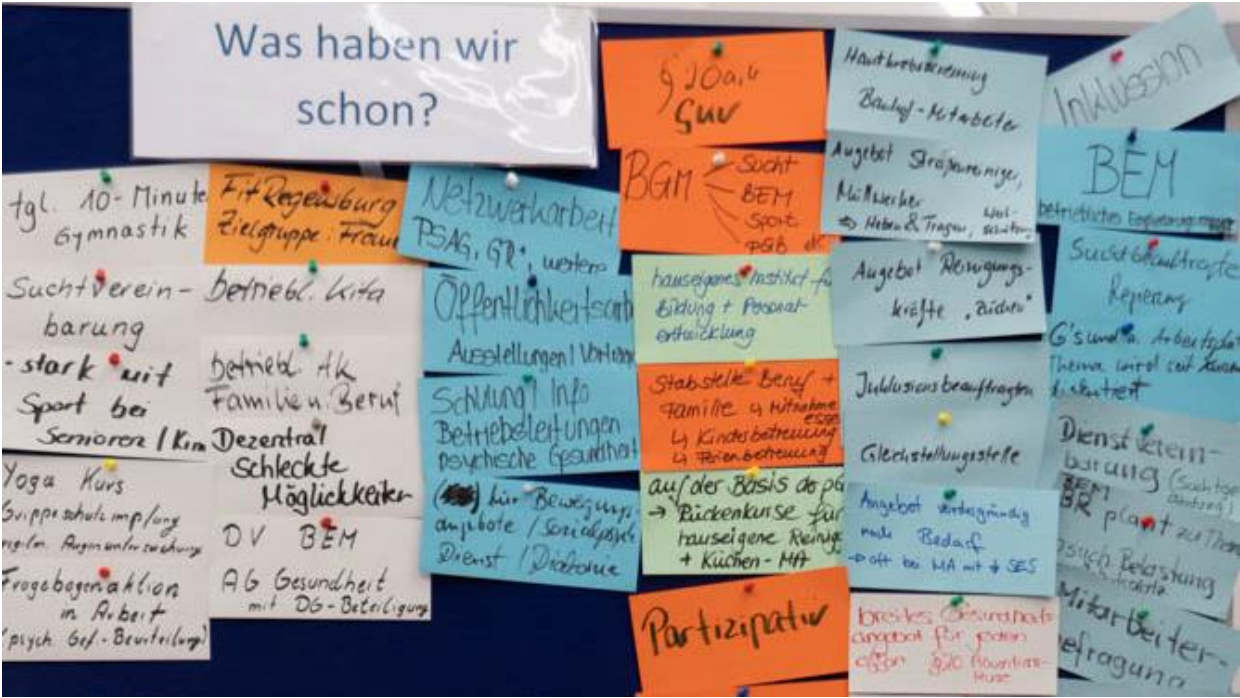 Was haben wir
schon?
tgl. 10-Minute
Gymnastik
Suchtverein-
barung
- stark mit
Sport bei
Senioren / Kin
Yoga Kurs
Grippeschutzimpfung
Augenuntersuchung
Fragebogenaktion
in Arbeit
(psych. Gef.-Beurteilung)
Fit Regensburg
Zielgruppe: Frau
betriebl. Kita
betriebl. AK
Familie u. Beruf
Dezentral
Schleckte
Möglickkeiten
DV BEM
AG Gesundheit
mit DG-Beteiligung
Netzwerkarbeit
PSAG, GR+, weitere
Öffentlichkeitsarb
Ausstellungen / Vorträge
Schulung / Info
Betriebsleitungen
psychische Gesundheit
für Bewegungs-
angebote / Sozialpsych
Dienst / Diakonie
§ 20a,b
GUV
BGM
Sucht
BEM
Sport
PGB
hauseigenes Institut für
Bildung + Personal-
entwicklung
Stabstelle Beruf +
Familie ↳ Mitnahme
essen
↳ Kinderbetreuung
↳ Ferienbetreuung
auf der Basis der pG
→ Rückenkurse für
hauseigene Reinigu
+ Küchen-MA
Partizipativ
Hautkrebsscreening
Bauhof-Mitarbeiter
Angebot Straßenreiniger,
Müllwerker
⇒ Heben & Tragen,
Angebot Reinigungs-
kräfte
Inklusionsbeauftragten
Gleichstellungsstelle
Angebot vordergründig
nach Bedarf
→ oft bei MA mit ↓ SES
breites Gesundheits-
angebot für jeden
offen §20
Inklussion
BEM
betriebliches Eingliederungsmanag
Suchtbeauftragte
Regierung
G'sunda Arbeitsplatz
Thema wird seit kurzem
diskutiert
Dienstverein-
barung
BEM
BR plant zu Thema
psych Belastung
Mitarbeiter-
befragung